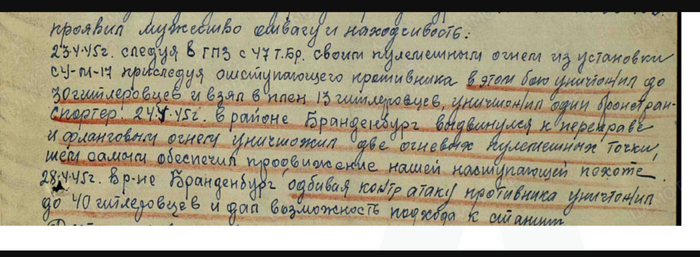 проявил мужество отвагу и находчивость:
23.4.45г. следуя в ГПЗ с 47 Т.Бр. своим пулеметным огнем из установки
СУ-М-17 преследуя отступающего противника в этом бою уничтожил до
30 гитлеровцев и взял в плен 13 гитлеровцев, уничтожил один бронетран-
спортер. 24.4.45г. в районе Бранденбург выдвинулся к переправе
и фланговым огнем уничтожил две огневых пулеметных точки,
тем самым обеспечил продвижение нашей наступающей пехоте.
28.4.45г. в р-не Бранденбург, отбивая контратаку противника уничтожил
до 40 гитлеровцев и дал возможность подхода к